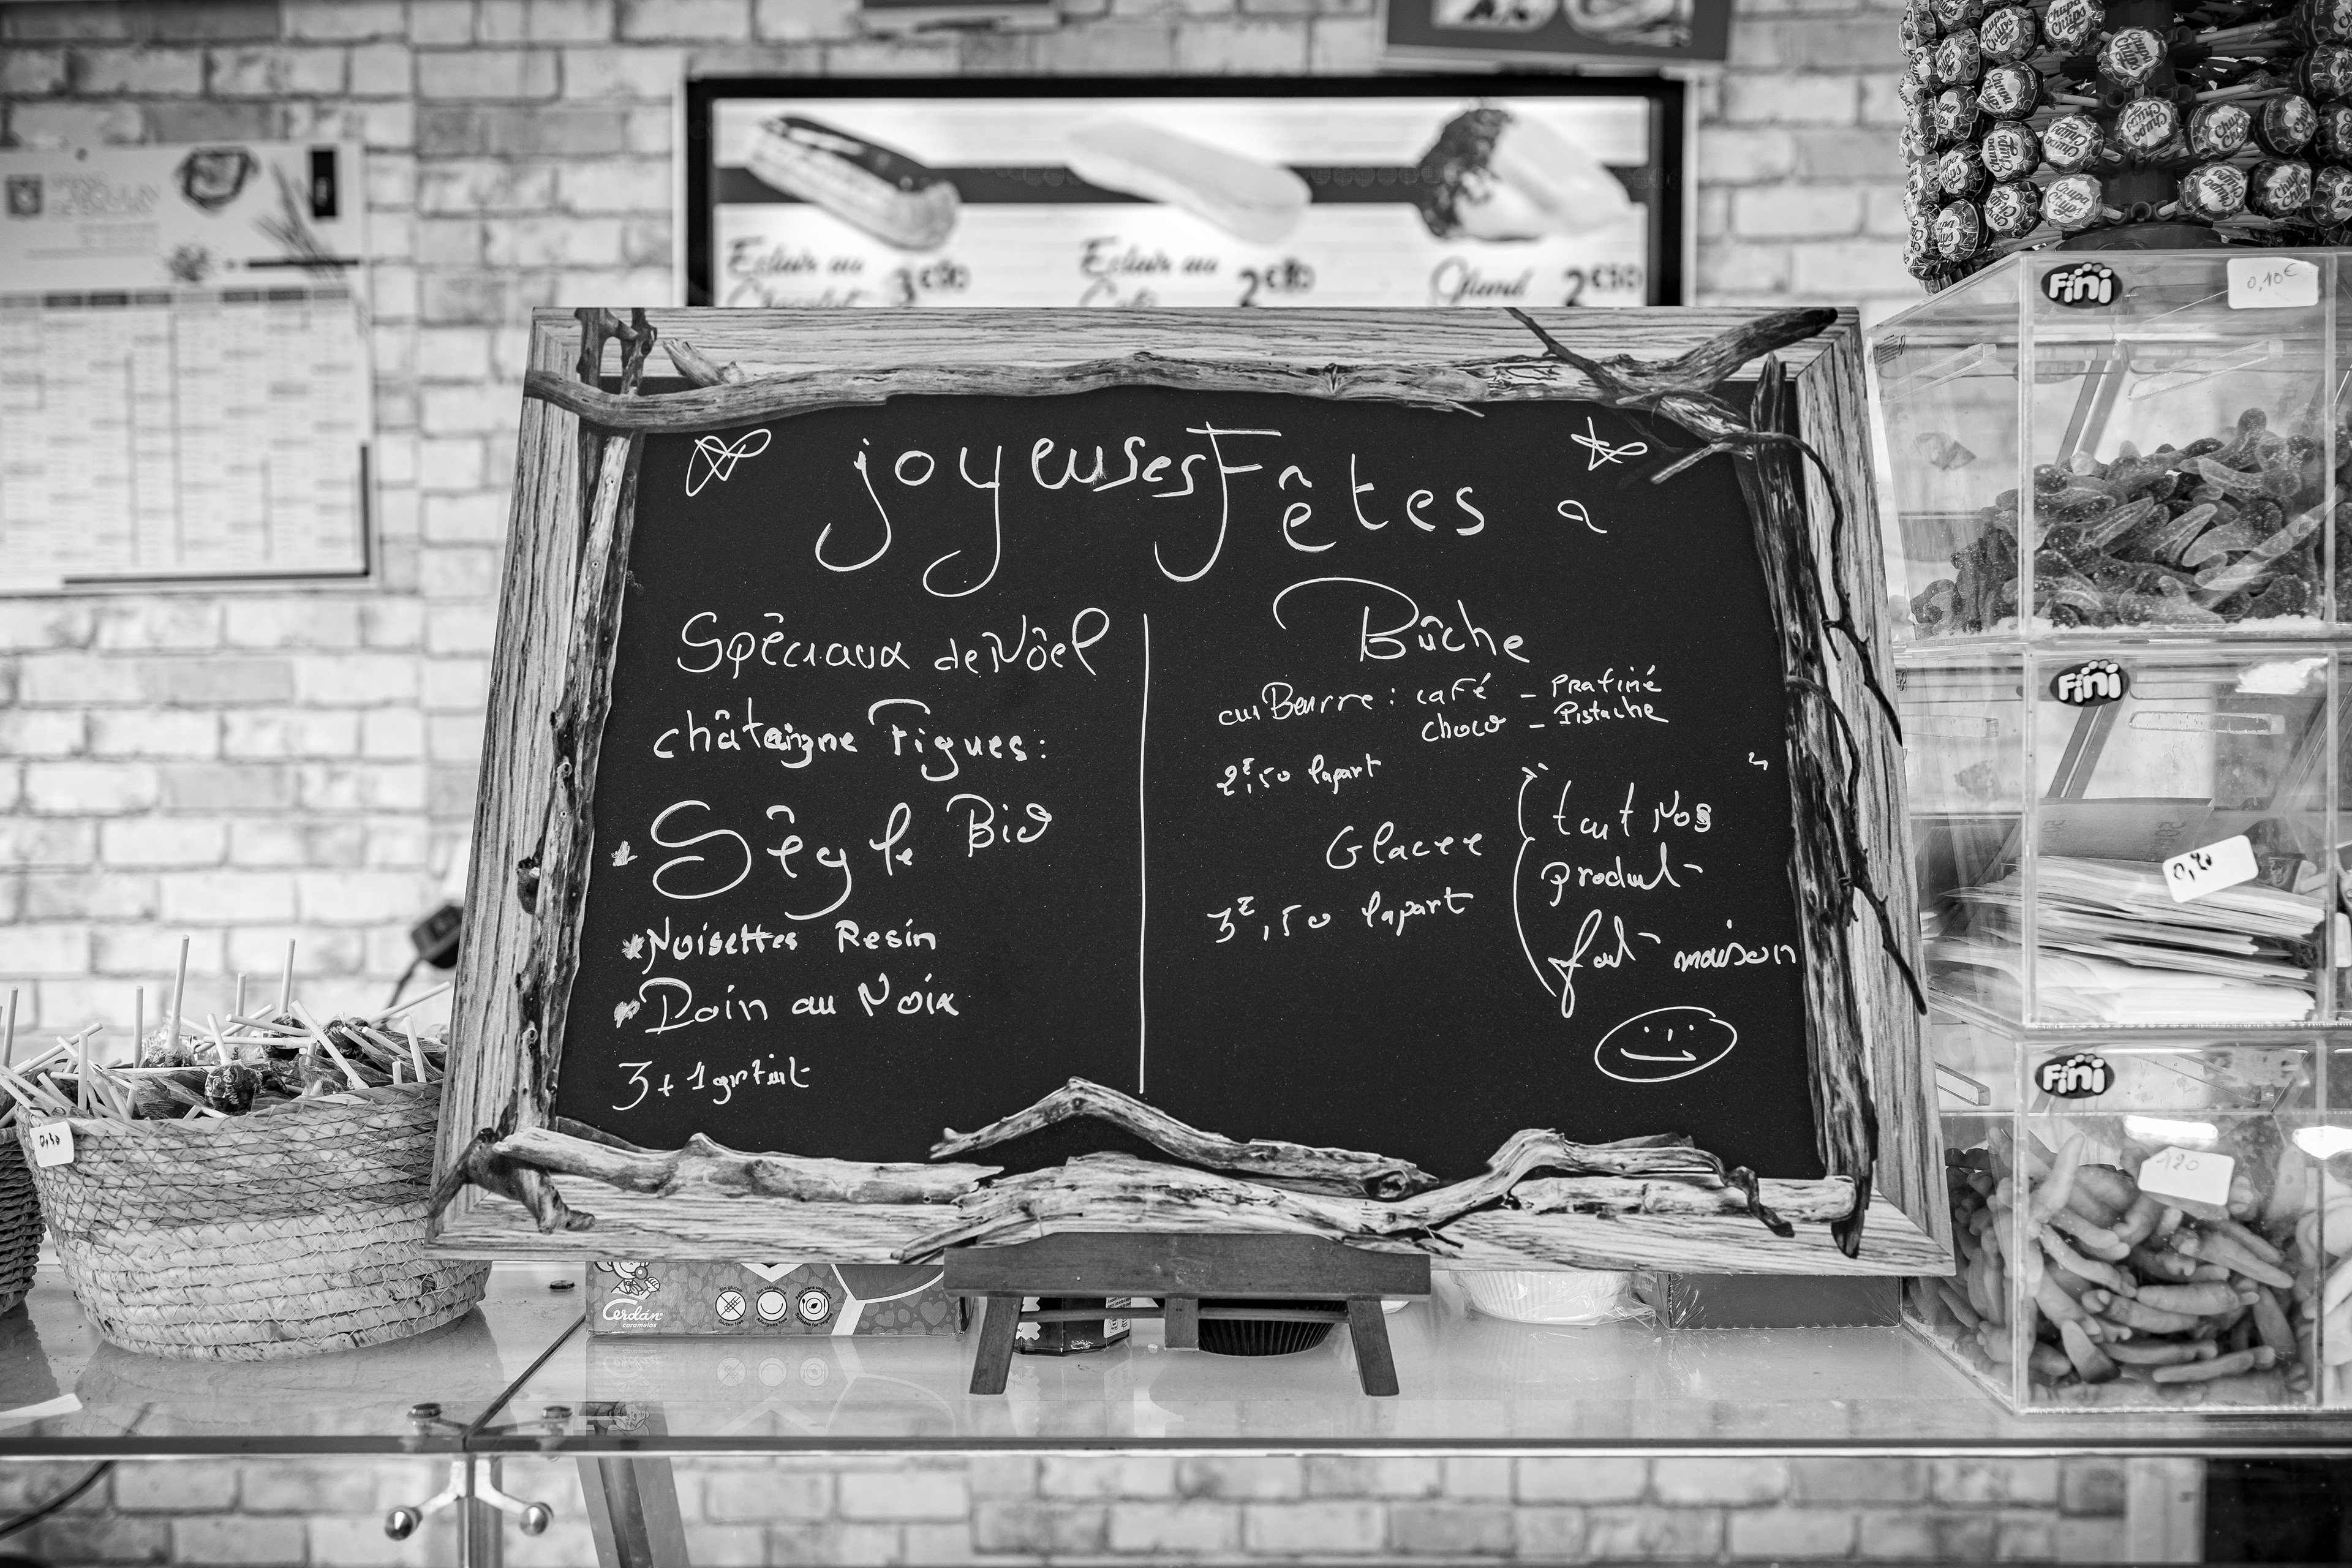 Eclair au
Chocolat
Eclair au
Café
Gland
Chupa Chups
Fini
0,10€
joyeuses Fêtes
Spêciaux de Nôel
châtaigne Figues:
* Sêgle Bio
* Noisettes Resin
* Pain au Noix
3 + 1 gratuit
Bûche
au Beurre : café - Praliné
choco - Pistache
2€,50 la part
Glacee
3€,50 la part
tout Nos
produit
fait maison
Fini
Fini
Cerdán
caramelos